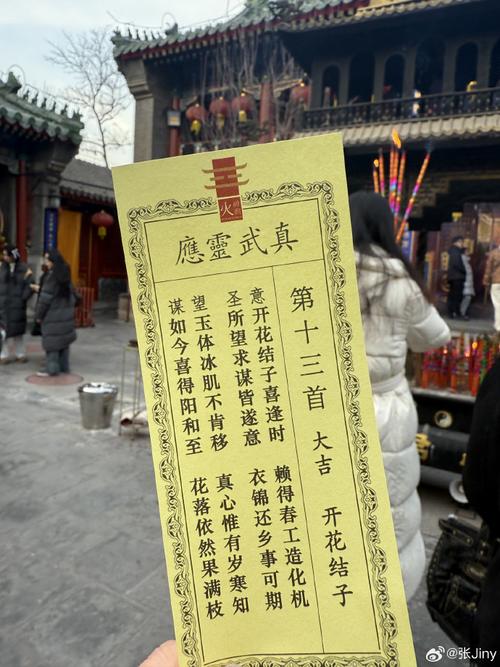 火
真武靈應
第十三首 大吉 开花结子
意开花结子喜逢时 赖得春工造化机
圣所望求谋皆遂意 衣锦还乡事可期
望玉体冰肌不肯移 真心惟有岁寒知
谋如今喜得阳和至 花落依然果满枝
@张Jiny